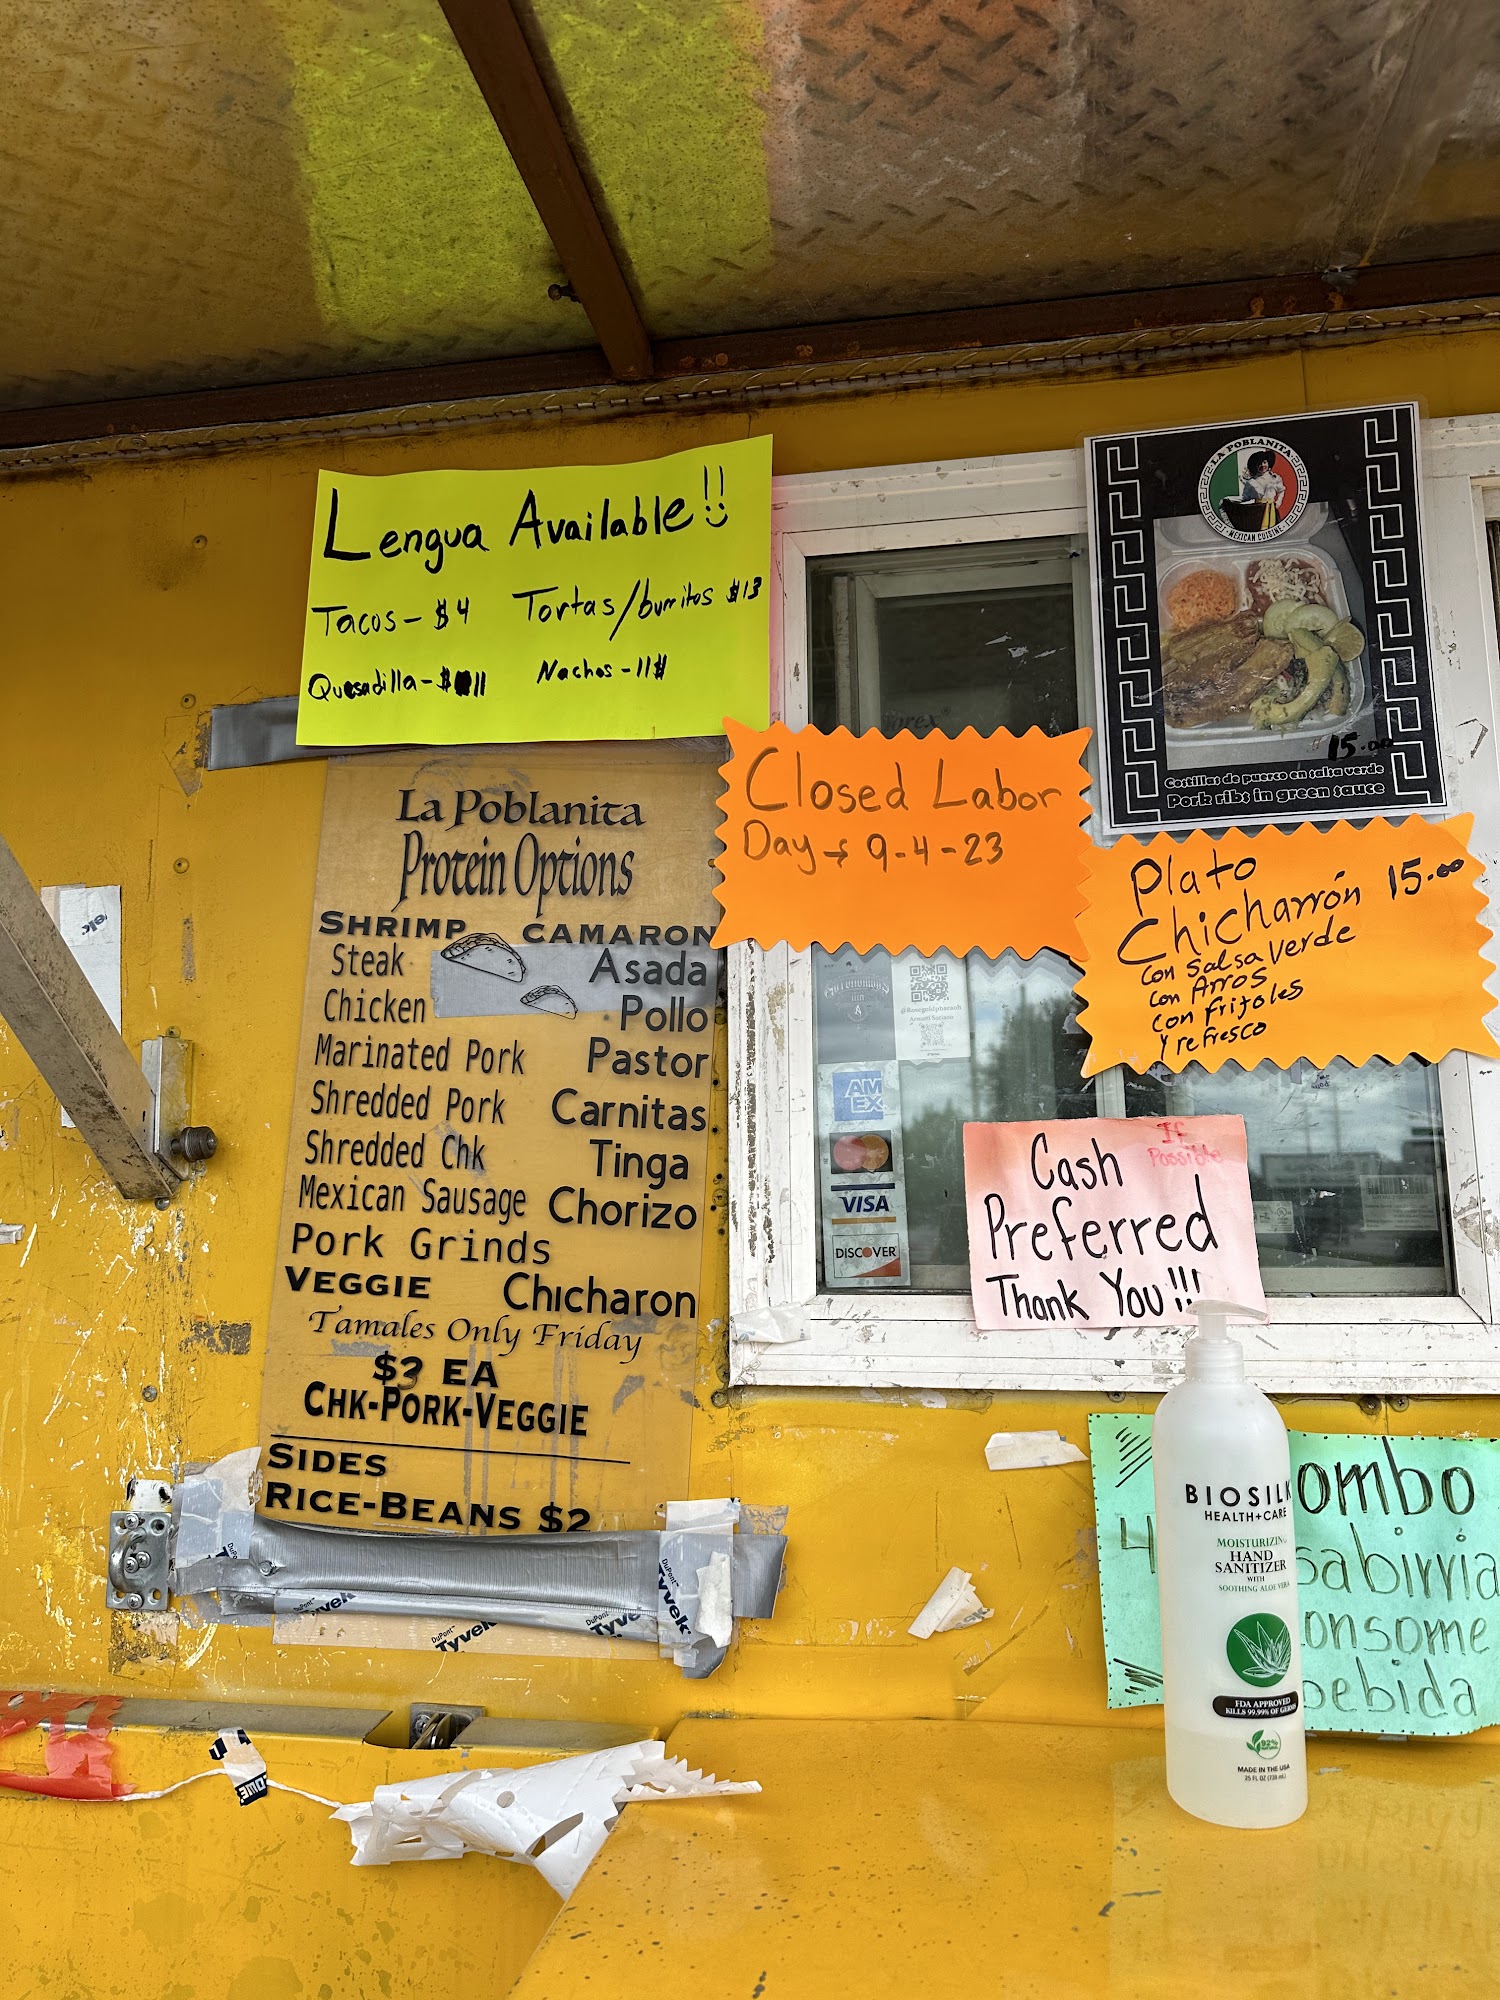 Lengua Available!!
Tacos- $4 Tortas/burritos $13
Quesadilla-$11 Nachos-11$
La Poblanita
Protein Options
SHRIMP CAMARON
Steak Asada
Chicken Pollo
Marinated Pork Pastor
Shredded Pork Carnitas
Shredded Chk Tinga
Mexican Sausage Chorizo
Pork Grinds
VEGGIE Chicharon
Tamales Only Friday
$3 EA
CHK-PORK-VEGGIE
SIDES
RICE-BEANS $2
DuPont™ Tyvek
DuPont™ Tyvek
DuPont™ Tyvek
Closed Labor
Day → 9-4-23
LA POBLANITA
MEXICAN CUISINE
15.00
Costillas de puerco en salsa verde
Pork ribs in green sauce
Plato
Chicharrón 15.00
con salsa verde
con Arros
con frijoles
Y refresco
AM
EX
VISA
DISCOVER
If
Possible
Cash
Preferred
Thank You!!!
BIOSILK
HEALTH+CARE
MOISTURIZING
HAND
SANITIZER
WITH
SOOTHING ALOE VERA
FDA APPROVED
KILLS 99.99% OF GERMS
92%
MADE IN THE USA
25 FL OZ (739 mL)
ombo
4 sabirria
onsome
bebida